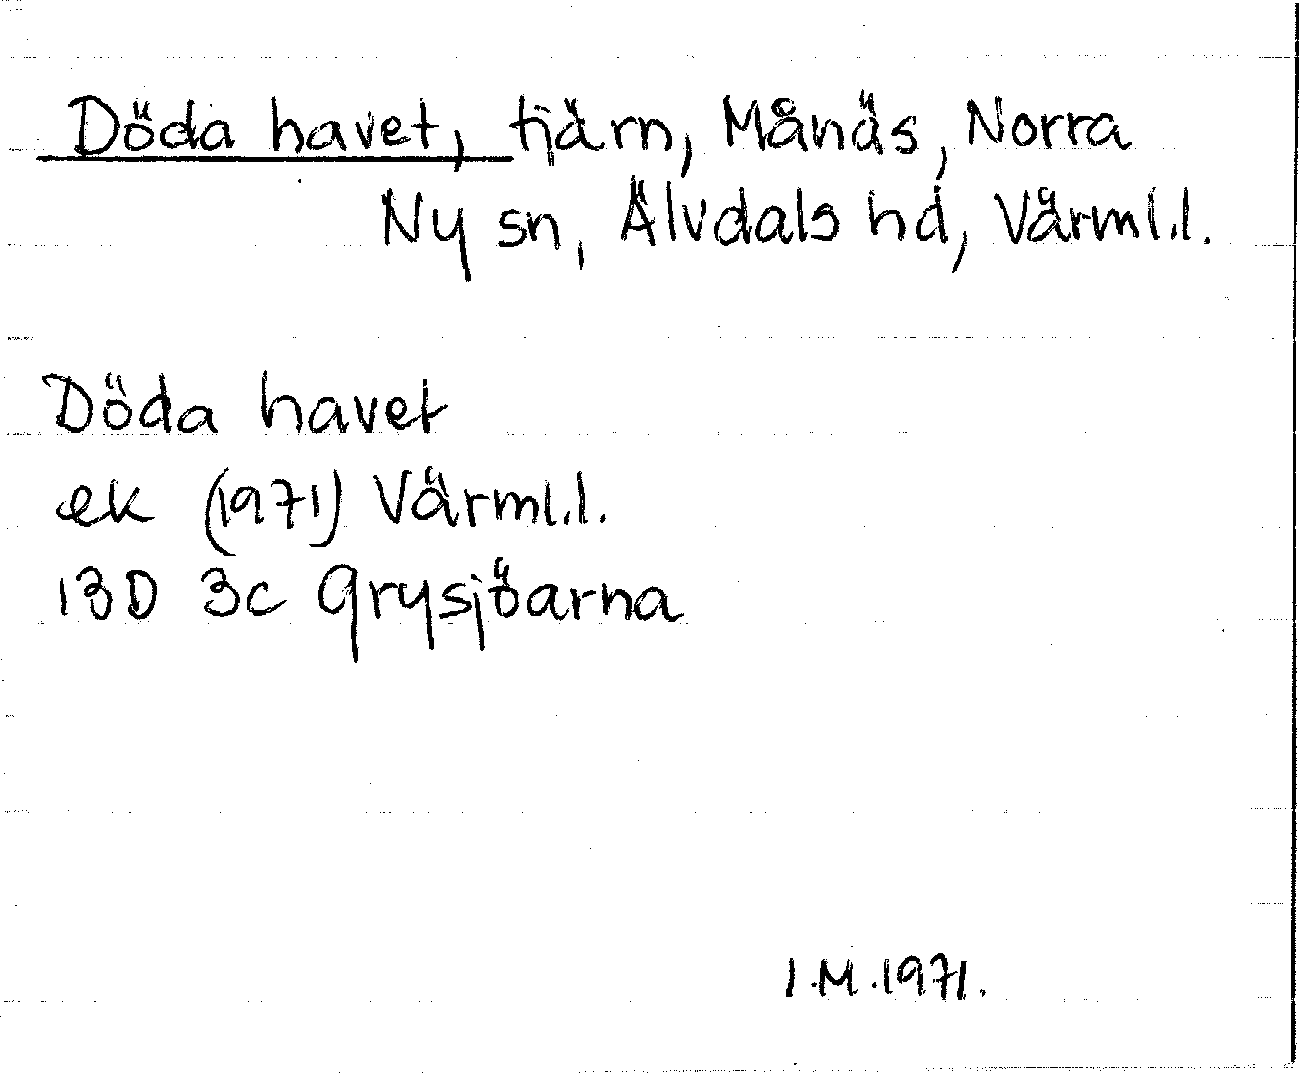 Döda havet, tjärn, Månäs, Norra
Ny sn, Älvdals hd, Värml.l.
Döda havet
ek (1971) Värml.l.
13D 3c Grysjöarna
I.M.1971.